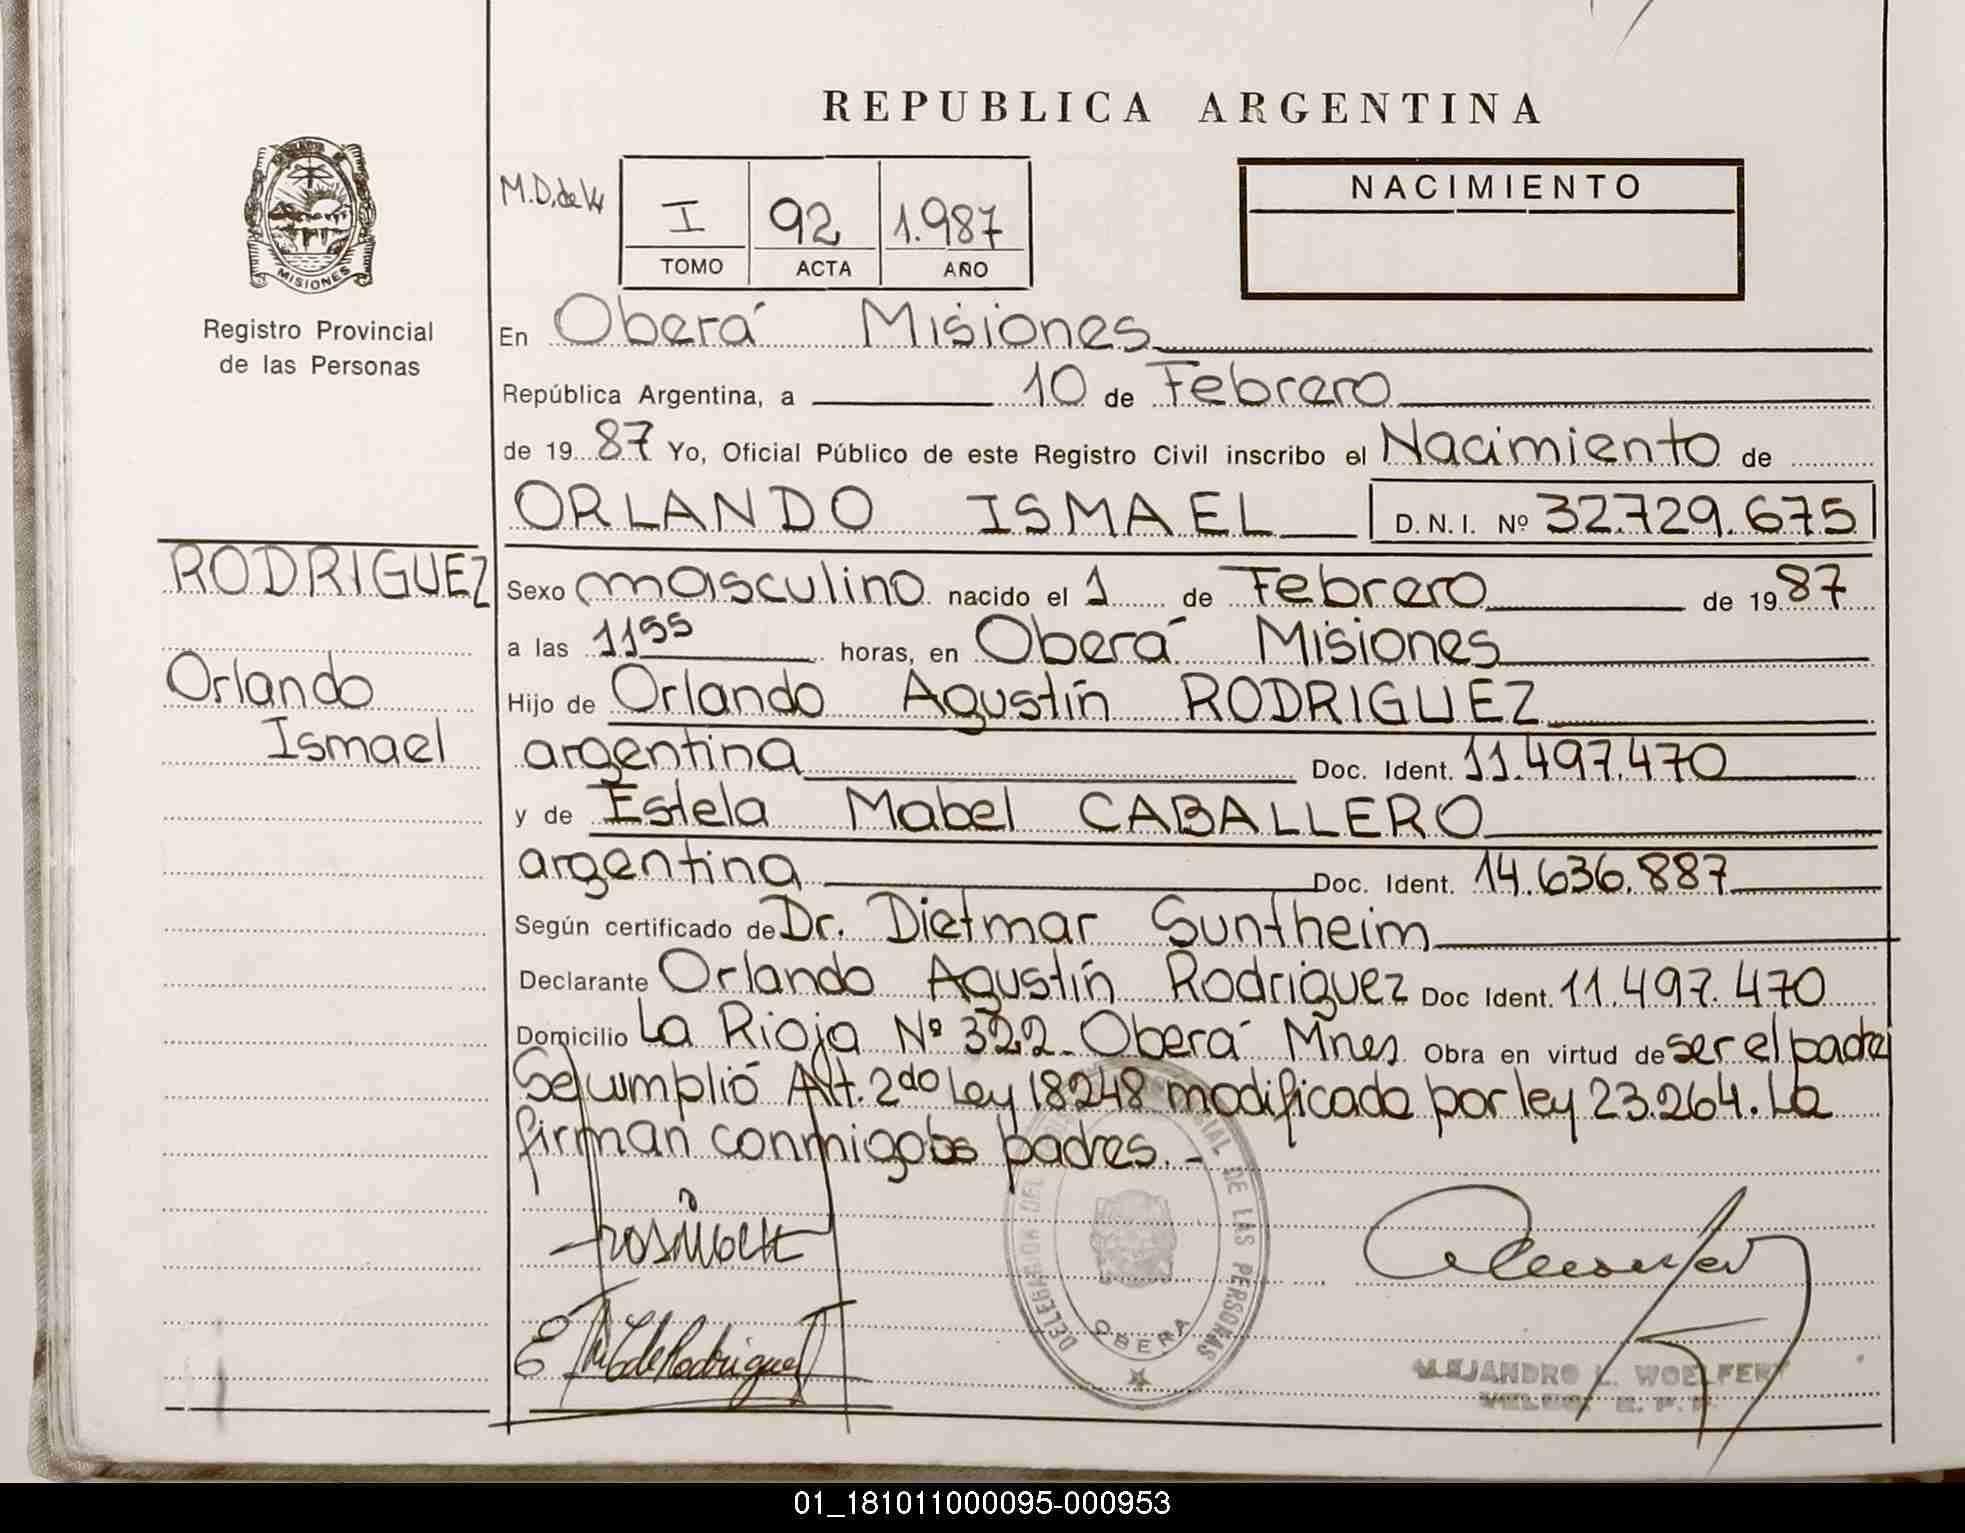 REPUBLICA ARGENTINA
MISIONES
Registro Provincial
de las Personas
M.D.de
I 92 1.987
TOMO ACTA AÑO
NACIMIENTO
En Oberá Misiones
República Argentina, a 10 de Febrero
de 19 87 Yo, Oficial Público de este Registro Civil inscribo el Nacimiento de
ORLANDO ISMAEL D.N.I. Nº 32.729.675
RODRIGUEZ
Orlando
Ismael
Sexo masculino nacido el 1 de Febrero de 19 87
a las 1155 horas, en Oberá Misiones
Hijo de Orlando Agustín RODRIGUEZ
argentina Doc. Ident. 11.497.470
y de Estela Mabel CABALLERO
argentina Doc. Ident. 14.636.887
Según certificado de Dr. Dietmar Suntheim
Declarante Orlando Agustín Rodriguez Doc Ident. 11.497.470
Domicilio La Rioja Nº 322 - Oberá Mnes Obra en virtud de ser el padre
Se cumplió Art. 2do Ley 18248 modificada por ley 23.264. La
firman conmigo los padres. -
DELEGACION DEL DE LAS PERSONAS
OBERA
E de Rodriguez
ALEJANDRO L. WOELFERT
01_181011000095-000953